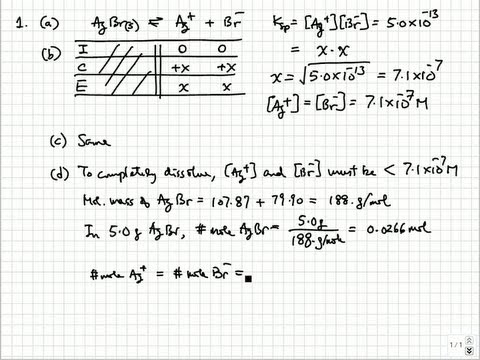 1. (a) AgBr(s) ⇌ Ag⁺ + Br⁻
Ksp = [Ag⁺][Br⁻] = 5.0×10⁻¹³
= x · x
x = √5.0×10⁻¹³ = 7.1×10⁻⁷
[Ag⁺] = [Br⁻] = 7.1×10⁻⁷ M
(b) I 0 0
C +x +x
E x x
(c) Same
(d) To completely dissolve, [Ag⁺] and [Br⁻] must be < 7.1×10⁻⁷ M
Mol. mass of AgBr = 107.87 + 79.90 = 188. g/mol
In 5.0 g AgBr, # mole AgBr = 5.0g / 188. g/mole = 0.0266 mol
# mole Ag⁺ = # mole Br⁻ =
1 / 1